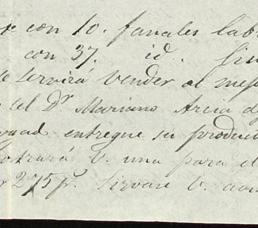 con 10. fanales lab
con 37. id. Sin
servirá vender al mejo
el Dr. Mariano Arcia d
entregue su produci
V. una para el
275 p.s Sirvase V.